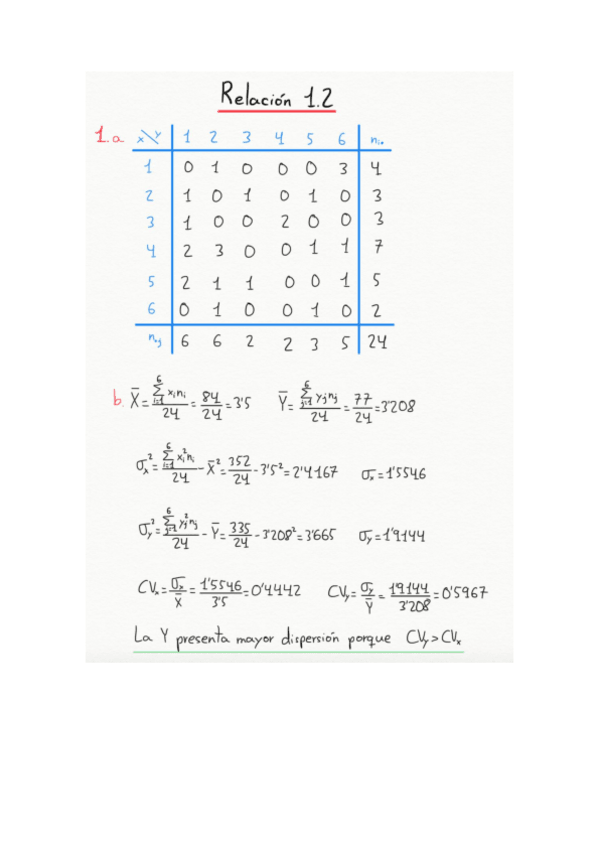 Relación 1.2
1.a x\y 1 2 3 4 5 6 nᵢ.
1 0 1 0 0 0 3 4
2 1 0 1 0 1 0 3
3 1 0 0 2 0 0 3
4 2 3 0 0 1 1 7
5 2 1 1 0 0 1 5
6 0 1 0 0 1 0 2
n.ⱼ 6 6 2 2 3 5 24
b. X̄ = ∑ᵢ₌₁⁶ xᵢnᵢ / 24 = 84/24 = 3'5 Ȳ = ∑ⱼ₌₁⁶ yⱼnⱼ / 24 = 77/24 = 3'208
σₓ² = ∑ᵢ₌₁⁶ xᵢ²nᵢ / 24 - X̄² = 352/24 - 3'5² = 2'4167 σₓ = 1'5546
σᵧ² = ∑ⱼ₌₁⁶ yⱼ²nⱼ / 24 - Ȳ = 335/24 - 3'208² = 3'665 σᵧ = 1'9144
CVₓ = σₓ/X̄ = 1'5546/3'5 = 0'4442 CVᵧ = σᵧ/Ȳ = 1'9144/3'208 = 0'5967
La Y presenta mayor dispersión porque CVᵧ > CVₓ